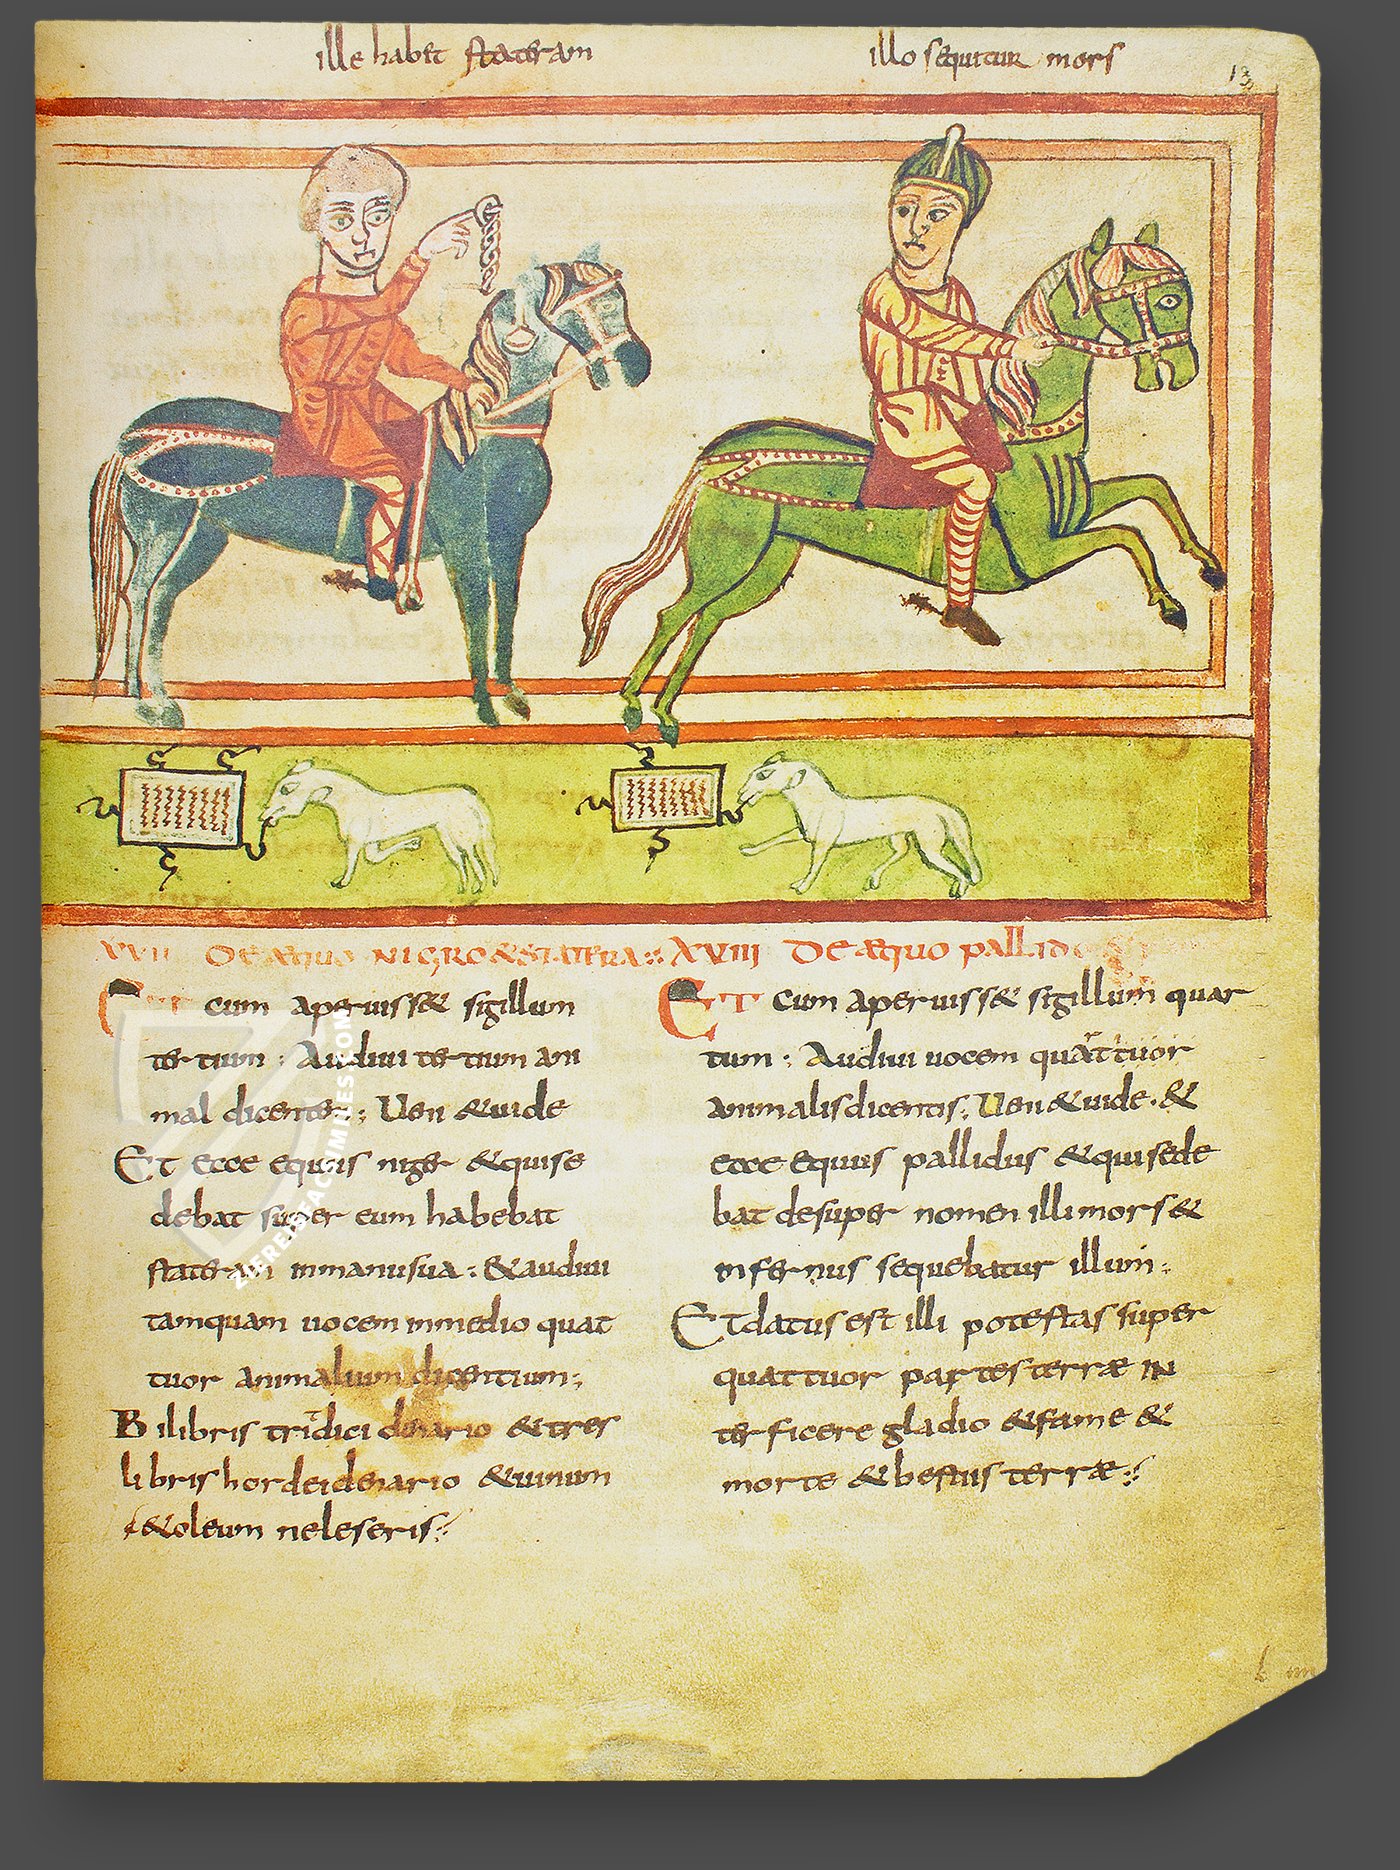 ille habet stateram
illo sequitur mors
13
XVII DE aequo NIGRO & STATERA :
ET cum aperuiss& sigillum
tertium : Audiui tertium ani
mal dicentem : Ueni & uide
Et ecce equus niger & qui se
debat super eum habebat
stateram in manu sua : & audiui
tamquam uocem in medio quat
tuor animalium dicentium ;
Bilibris tridici denario & tres
libris hordei denario & uinum
& oleum ne leseris :
XVIII DE aequo pallido
ET cum aperuiss& sigillum quar
tum : Audiui uocem quattuor
animalis dicentis ; Ueni & uide . &
ecce equus pallidus & qui sede
bat desuper nomen illi mors &
infernus sequebatur illum :
Et datus est illi potestas super
quattuor partes terrae IN
terficere gladio & fame &
morte & bestiis terrae :
ZIEREIS FACSIMILES .COM